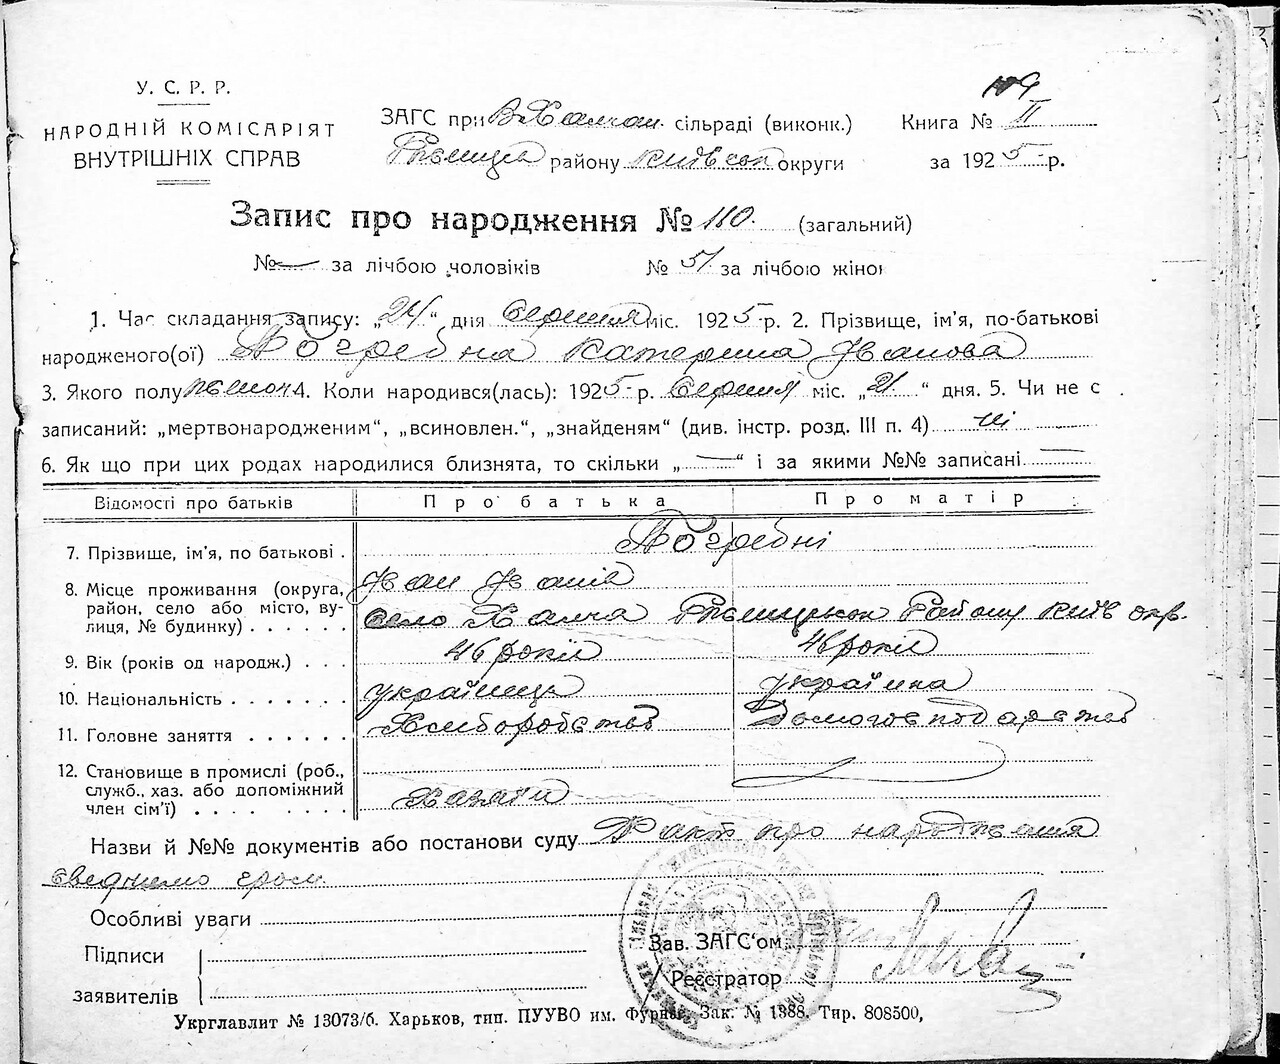 У. С. Р. Р.
НАРОДНІЙ КОМІСАРІЯТ
ВНУТРІШНІХ СПРАВ
ЗАГС при сільраді (виконк.)
Ржищів району Київськ округи
109
Книга № II
за 1925 р.
Запис про народження № 110. (загальний)
№ — за лічбою чоловіків № 51 за лічбою жінок
1. Час складання запису: „24“ дня Серпня міс. 1925 р. 2. Прізвище, ім’я, по-батькові
народженого(ої) Погребна Катерина Іванова
3. Якого полу жіноч 4. Коли народився(лась): 1925 р. Серпня міс. „21“ дня. 5. Чи не є
записаний: „мертвонародженим“, „всиновлен.“, „знайденям“ (див. інстр. розд. III п. 4) ні
6. Як що при цих родах народилися близнята, то скільки „—“ і за якими №№ записані —
Відомості про батьків Про батька Про матір
7. Прізвище, ім’я, по батькові . Погребні
Іван Іванів
8. Місце проживання (округа,
район, село або місто, ву-
лиця, № будинку) . . . . . . село Халча Району Київ окр.
9. Вік (років од народж.) . . . 46 років 46 років
10. Національність . . . . . . . українець українка
11. Головне заняття . . . . . . Хліборобство Домогосподарство
12. Становище в промислі (роб.,
служб., хаз. або допоміжний
член сім’ї) . . . . . . . . . Хазяїн
Назви й №№ документів або постанови суду Факт про народження
Особливі уваги
Підписи
заявителів
Зав. ЗАГС‘ом
Реєстратор
Укрглавлит № 13073/б. Харьков, тип. ПУУВО им. Фрунзе. Зак. № 1388. Тир. 808500,